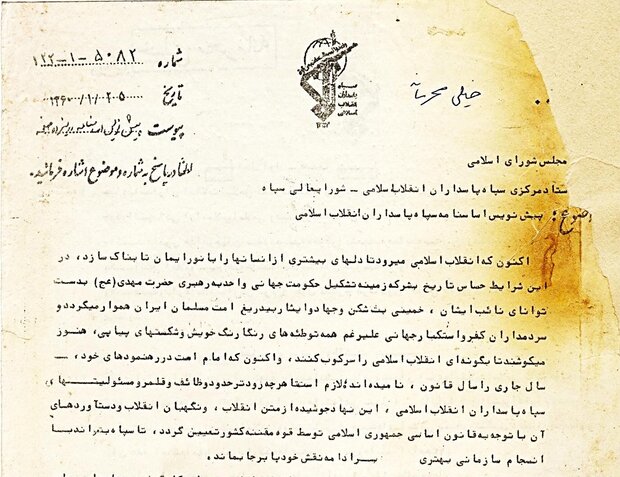 شماره ۵۰۸۲-۱-۱۲۲
تاریخ ۱۳۶۰/۱۰/۲۰۵
پیوست پیش نویس اساسنامه
لطفا در پاسخ به شماره و موضوع اشاره فرمائید.
سپاه
پاسداران
انقلاب
اسلامی
خیلی محرمانه
مجلس شورای اسلامی
ستاد مرکزی سپاه پاسداران انقلاب اسلامی – شورایعالی سپاه
موضوع: پیش نویس اساسنامه سپاه پاسداران انقلاب اسلامی
اکنون که انقلاب اسلامی میرود تا دلهای بیشتری از انسانها را با نور ایمان تابناک سازد، در
این شرایط حساس تاریخ بشر که زمینه تشکیل حکومت جهانی واحد به رهبری حضرت مهدی (عج) بدست
توانای نائب ایشان، خمینی بت شکن وجهاد و ایثار بیدریغ امت مسلمان ایران هموار میگردد و
سردمداران کفر و استکبار جهانی علیرغم همه توطئه های رنگارنگ خویش و شکستهای پیاپی، هنوز
میکوشند تا بگونه ای انقلاب اسلامی را سرکوب کنند، واکنون که امام امت در رهنمودهای خود، –
سال جاری را سال قانون، نامیده اند؛ لازم است تا هرچه زودتر حدود وظائف و قلمرو مسئولیتهای
سپاه پاسداران انقلاب اسلامی، این نهاد جوشیده از متن انقلاب، و نگهبان انقلاب و دستآوردهای
آن با توجه به قانون اساسی جمهوری اسلامی توسط قوه مقننه کشور تعیین گردد، تا سپاه بتواند با
انسجام سازمانی بهتری بر ادامه نقش خود پا برجا بماند.